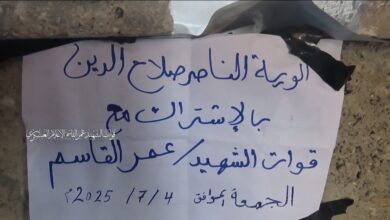 ألوية الناصر صلاح الدين
بالإشتراك مع
قوات الشهيد/عمر القاسم
الجمعة بموافق 4/7/2025م
قوات الشهيد عمر القاسم الإعلام العسكري